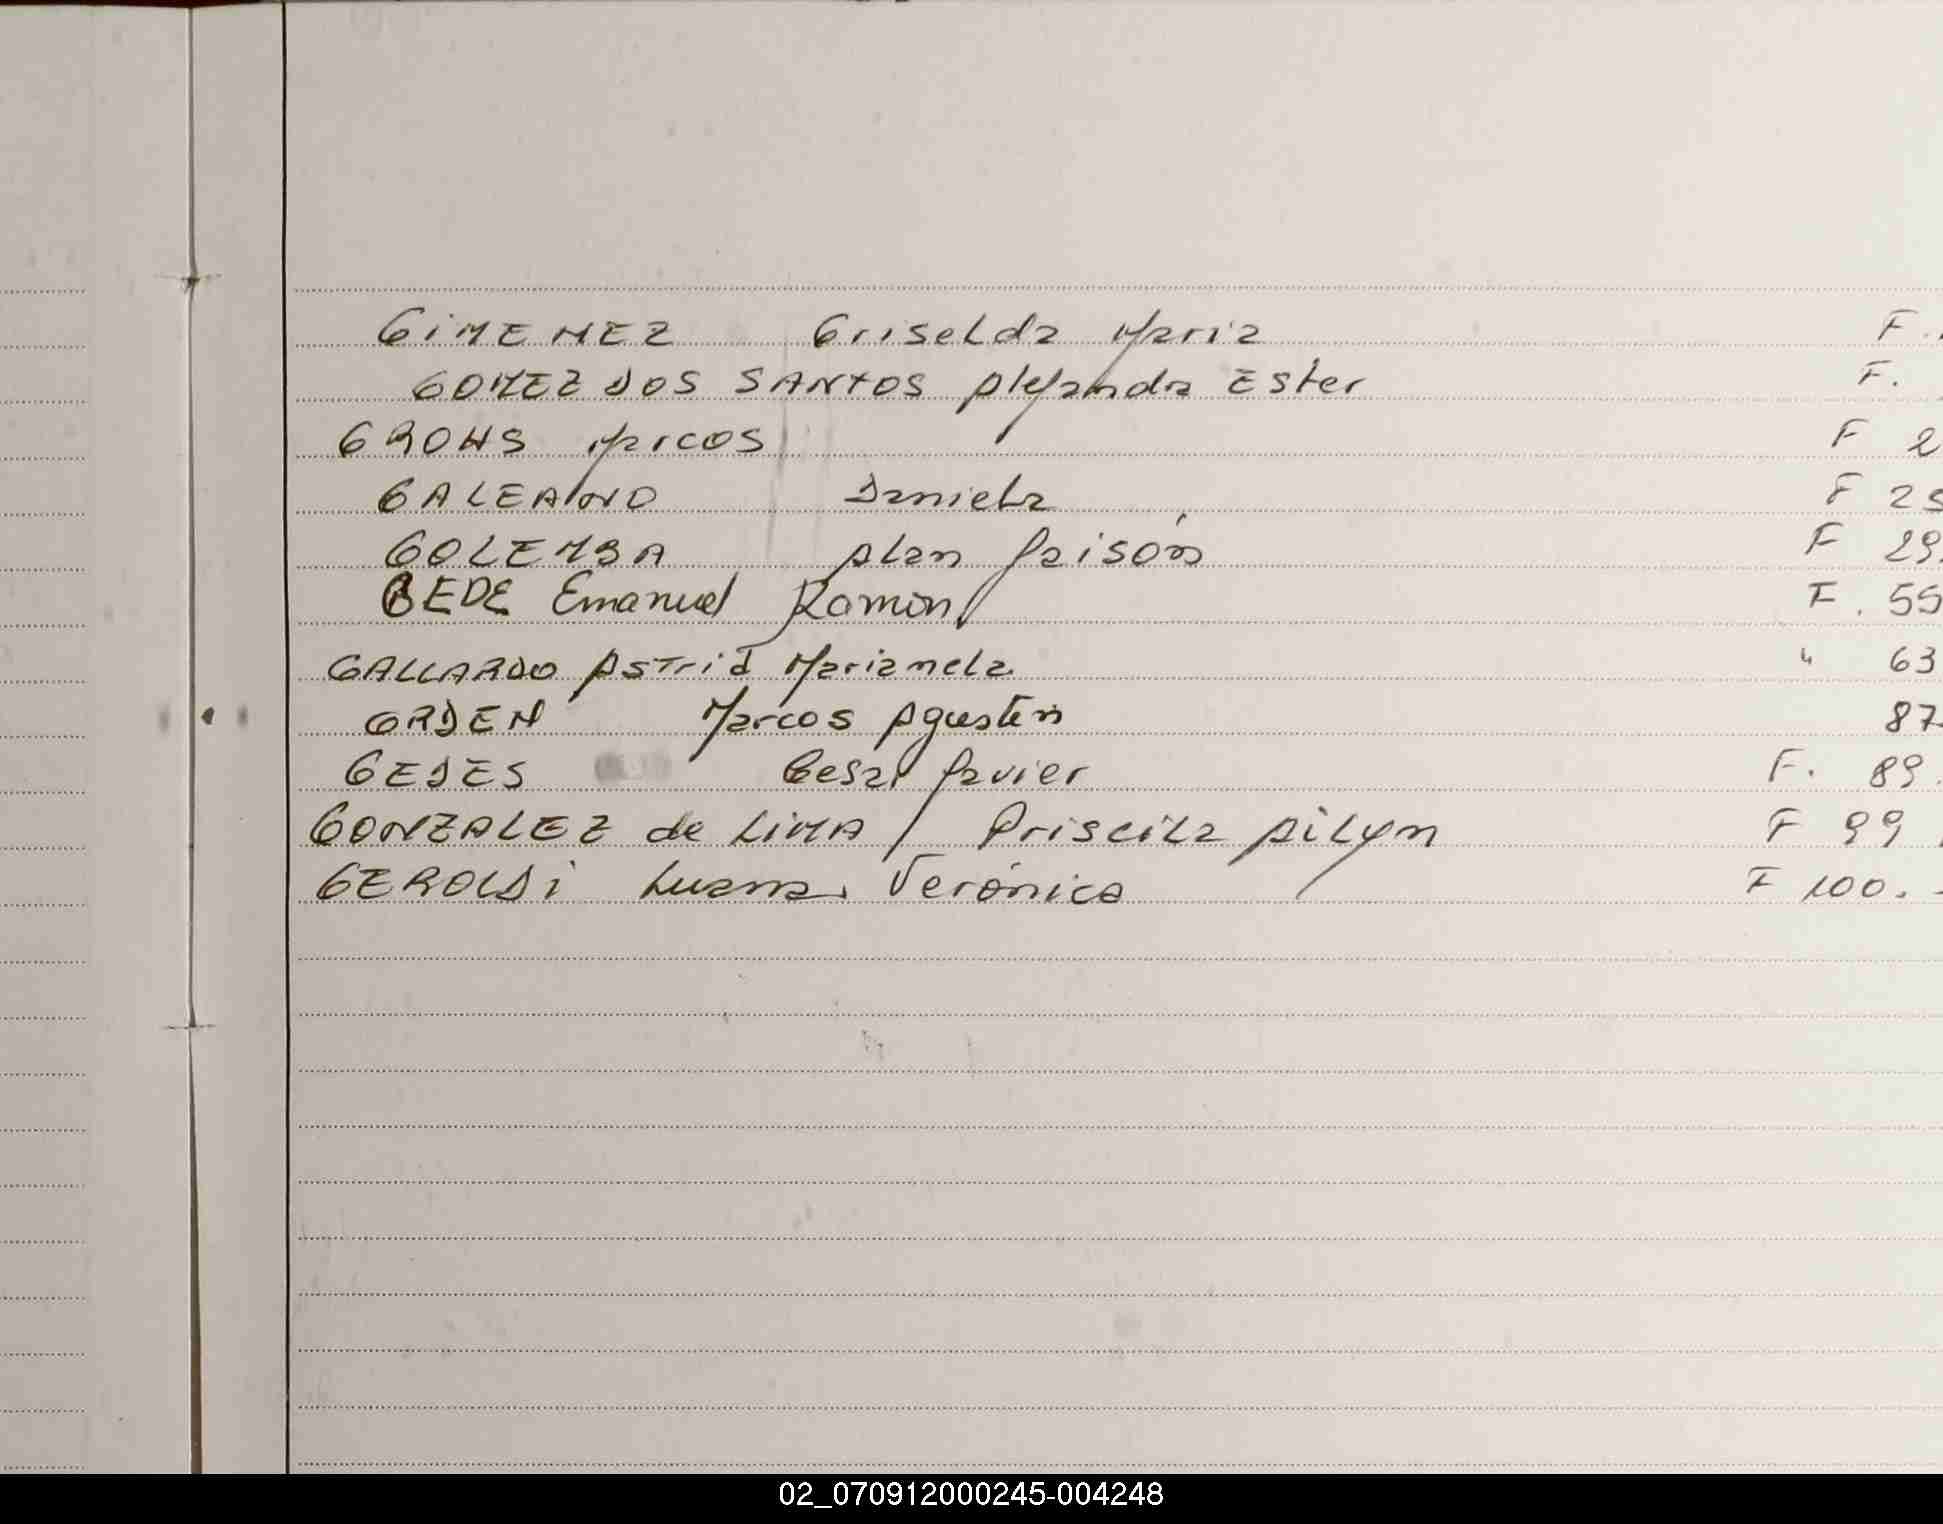 GIMENEZ Griselda Maria F.
GOMEZ DOS SANTOS Alejandra Ester F.
GROHS Marcos F 2
GALEANO Daniela F 25
GOLEMBA Alan Jaisón F 29.
BEDE Emanuel Ramon F. 55
GALLARDO Astrid Marianela " 63
GRDEN Marcos Agustin 87
GEDES Cesar Javier F. 89.
GONZALEZ de LIMA Priscila Ailyn F 99
GEROLDI Luana Verónica F 100.
02_070912000245-004248